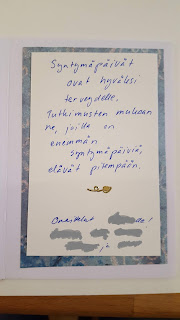 Syntymäpäivät
ovat hyväksi
terveydelle.
Tutkimusten mukaan
ne, joilla on
enemmän
syntymäpäiviä,
elävät pitempään.
Onnittelut
ja